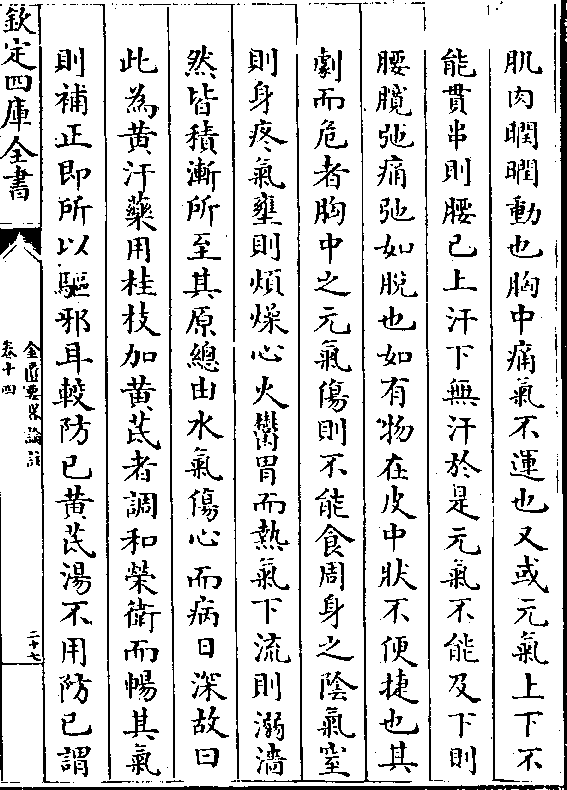 肌肉瞤瞤動也胸中痛氣不運也又或元氣上下不
能貫串則腰已上汗下無汗於是元氣不能及下則
腰髖弛痛弛如脫也如有物在皮中狀不便捷也其
劇而危者胸中之元氣傷則不能食周身之陰氣窒
則身疼氣壅則煩燥心火鬱胃而熱氣下流則溺濇
然皆積漸所至其原總由水氣傷心而病日深故曰
此為黄汗藥用桂枝加黄茋者調和榮衛而暢其氣
則補正即所以驅邪耳較防已黄茋湯不用防已謂
欽定四庫全書
金匱要畧論註
卷十四
二十七